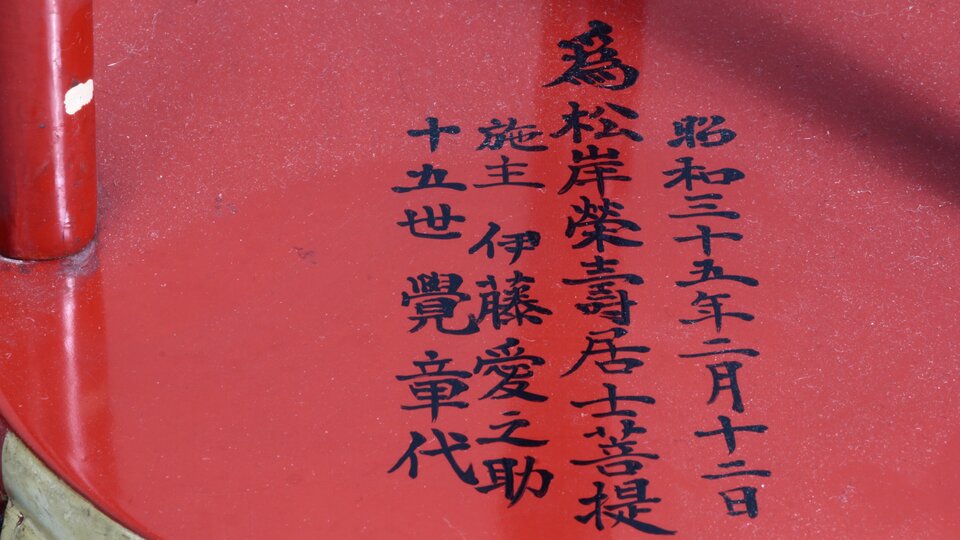 昭和三十五年二月十二日
爲松岸榮壽居士菩提
施主 伊藤愛之助
十五世 覺章代